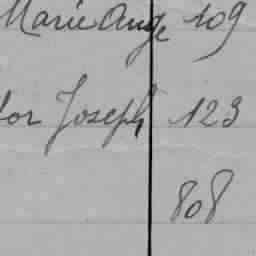 Marie Ange 109
Joseph 123
808